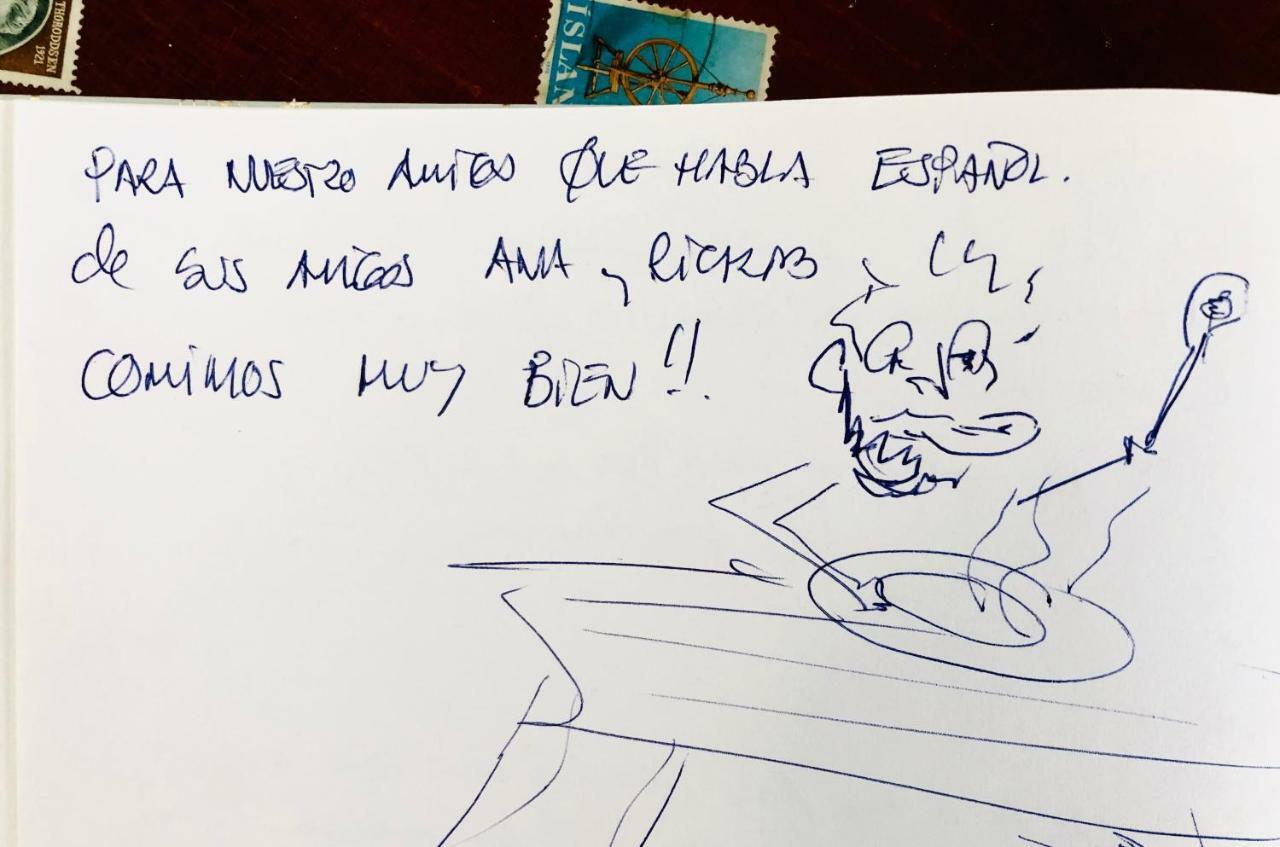 THORODDSEN
1921
ISLAN
PARA NUESTRO AMIGO QUE HABLA ESPAÑOL.
de sus AMIGOS ANA y
COMIMOS MUY BIEN!!